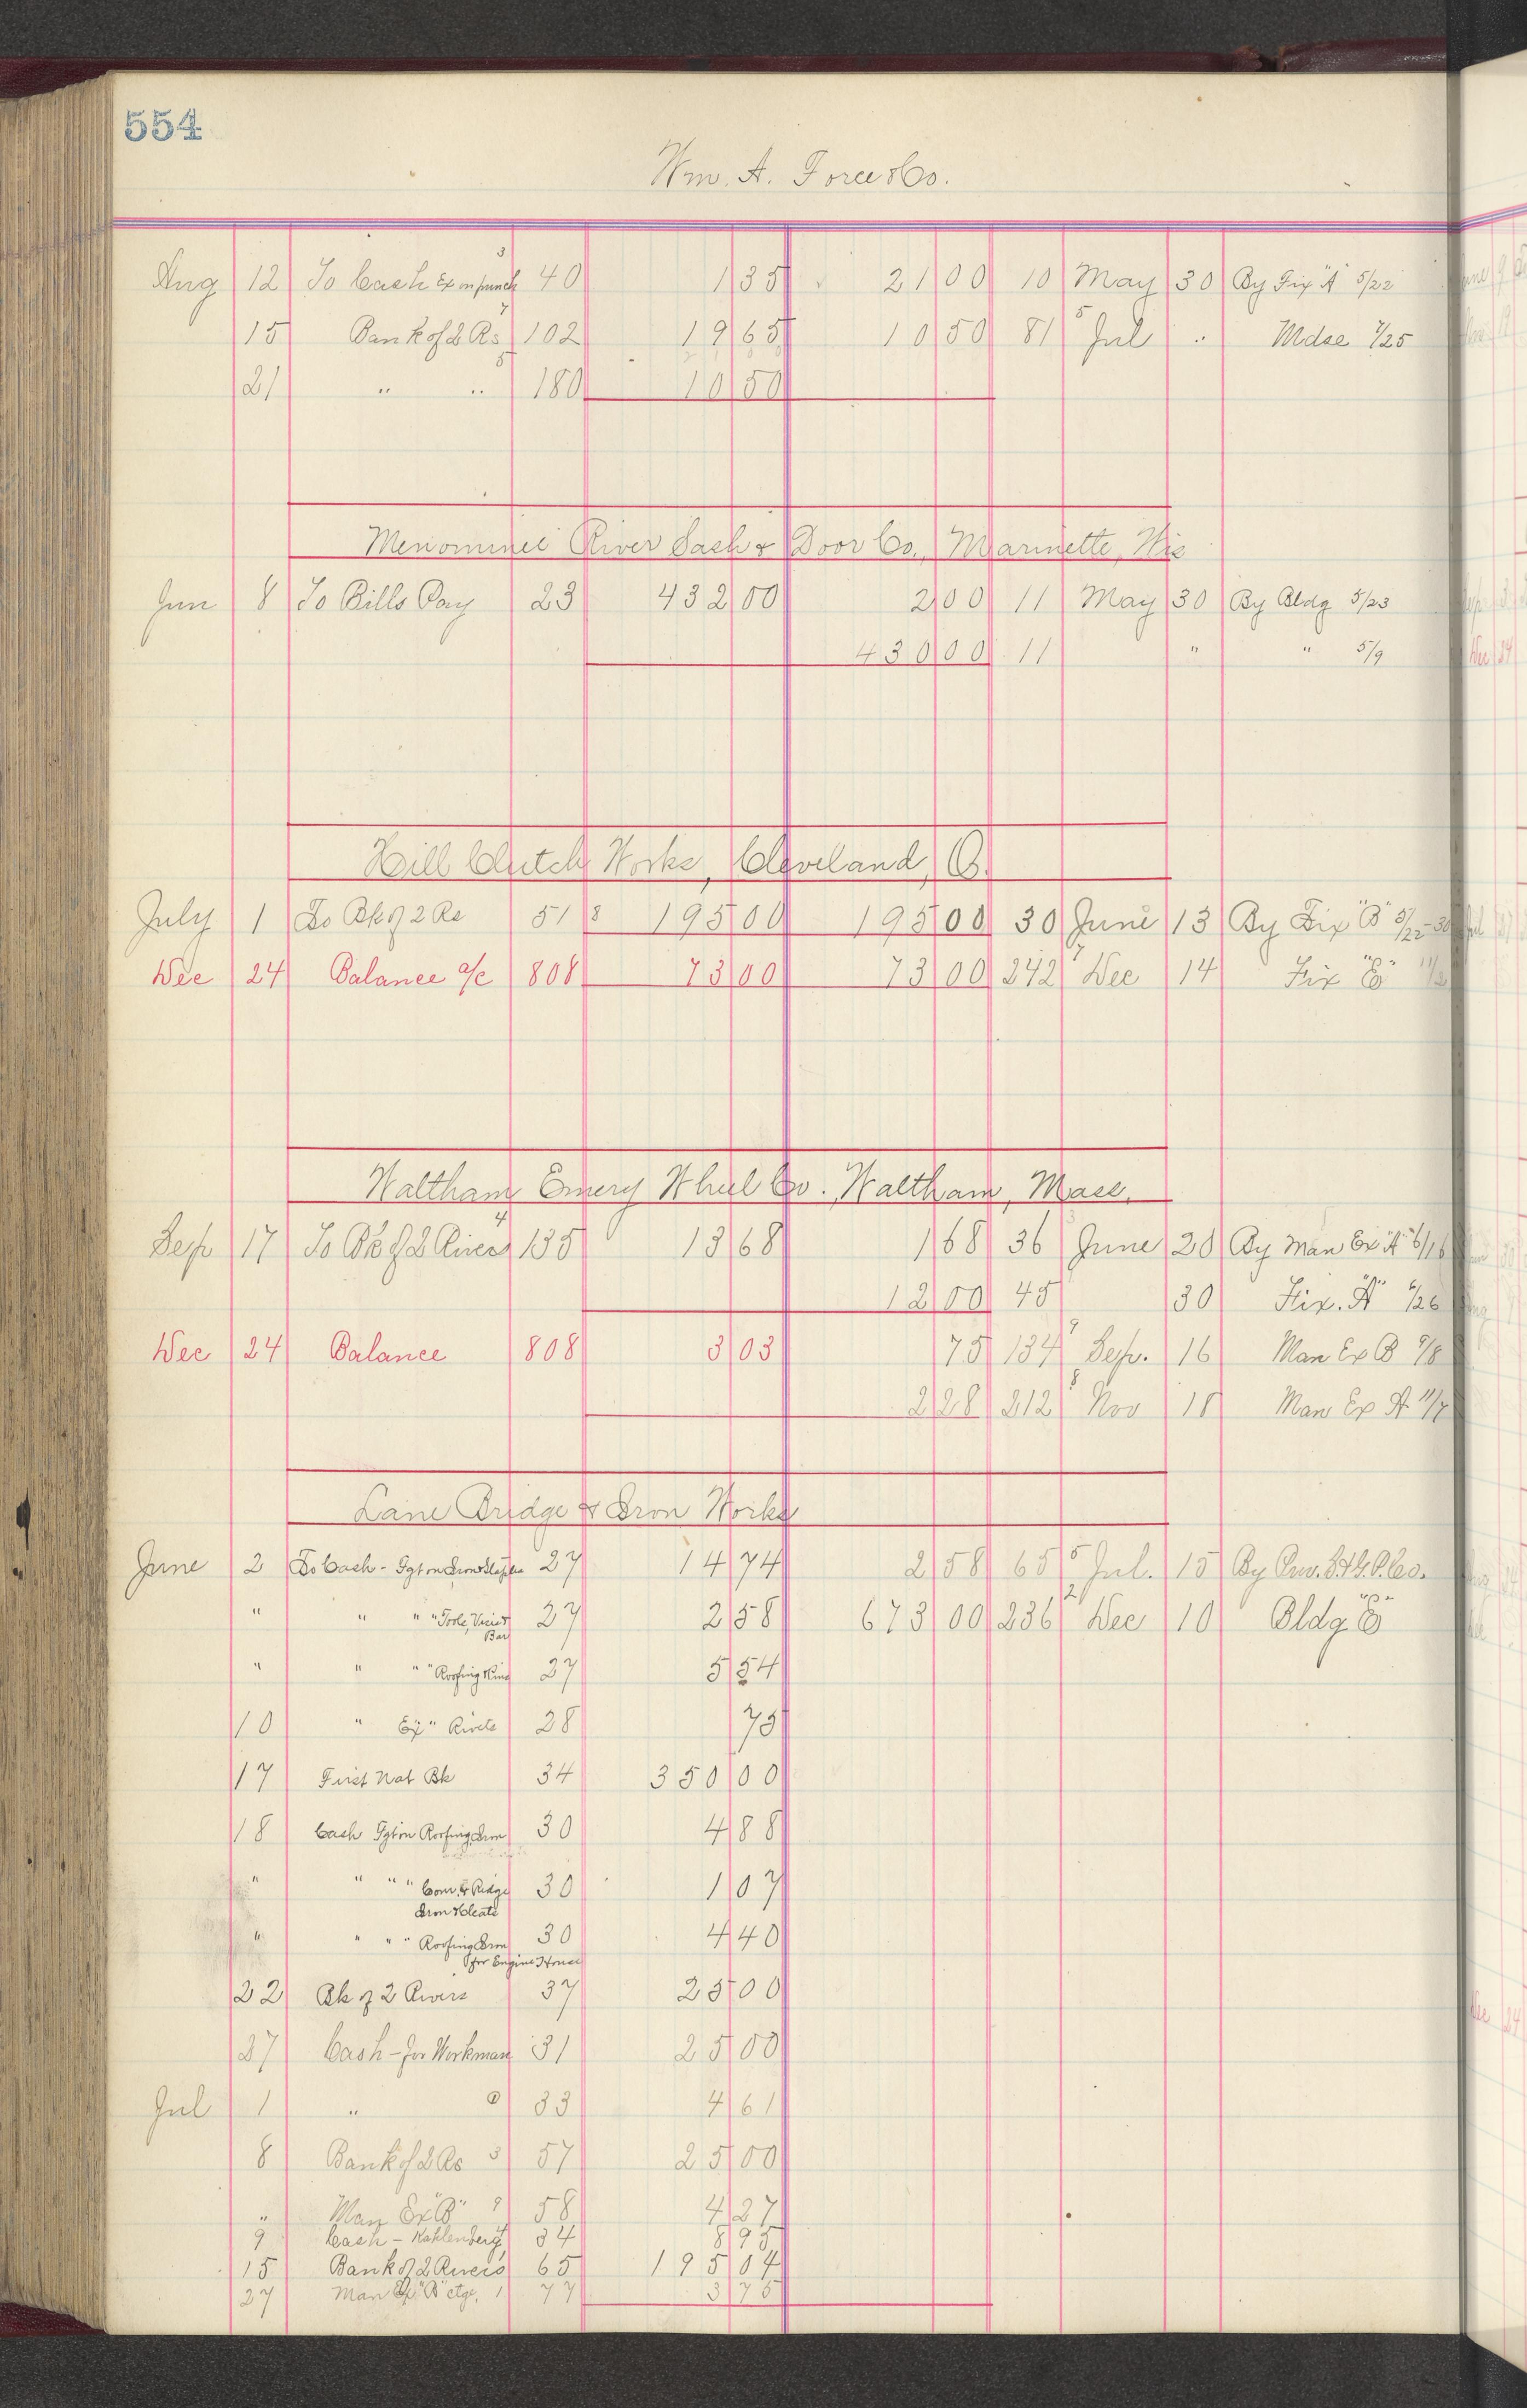 554
Wm. A. Force & Co.
Aug 12 To Cash Ex on punch 3 40 1 35 21 00 10 May 30 By Fix "A" 5/22
15 Bank of 2 Rs 7 102 19 65 10 50 81 5 Jul " Mdse 7/25
21 " " 5 180 10 50
Menominee River Sash & Door Co., Marinette, Wis
Jun 8 To Bills Pay 23 432 00 2 00 11 May 30 By Bldg 5/23
430 00 11 " " 5/9
Hill Clutch Works, Cleveland, O.
July 1 To Bk of 2 Rs 51 8 195 00 195 00 30 June 13 By Fix "B" 5/22-30
Dec 24 Balance a/c 808 73 00 73 00 242 7 Dec 14 Fix "E"
Waltham Emery Wheel Co., Waltham, Mass.
Sep 17 To Bk of 2 Rivers 4 135 13 68 1 68 36 June 20 By Man Ex "A" 6/16
12 00 45 30 Fix. "A" 6/26
Dec 24 Balance 808 3 03 75 134 9 Sep. 16 Man Ex B 9/8
2 28 212 8 Nov 18 Man Ex A 11/7
Lane Bridge & Iron Works
June 2 To Cash - Fgt on Iron & Staples 27 14 74 2 58 65 5 Jul. 15 By Prov. Co.
" " " " Tools, Vise & Bar 27 2 58 673 00 236 2 Dec 10 Bldg "E"
" " " " Roofing 27 5 54
10 " Ex " Rivets 28 75
17 First Nat Bk 34 350 00
18 Cash Fgt on Roofing Iron 30 4 88
" " " " Corr. & Ridge Iron & Cleats 30 1 07
" " " " Roofing Iron for Engine House 30 4 40
22 Bk of 2 Rivers 37 25 00
27 Cash - for Workman 31 25 00
Jul 1 " 33 4 61
8 Bank of 2 Rs 3 57 25 00
" Man Ex "B" 9 58 4 27
9 Cash - Kahlenberg 34 8 95
15 Bank of 2 Rivers 65 195 04
27 Man Ex "B" ctge. 1 77 3 75